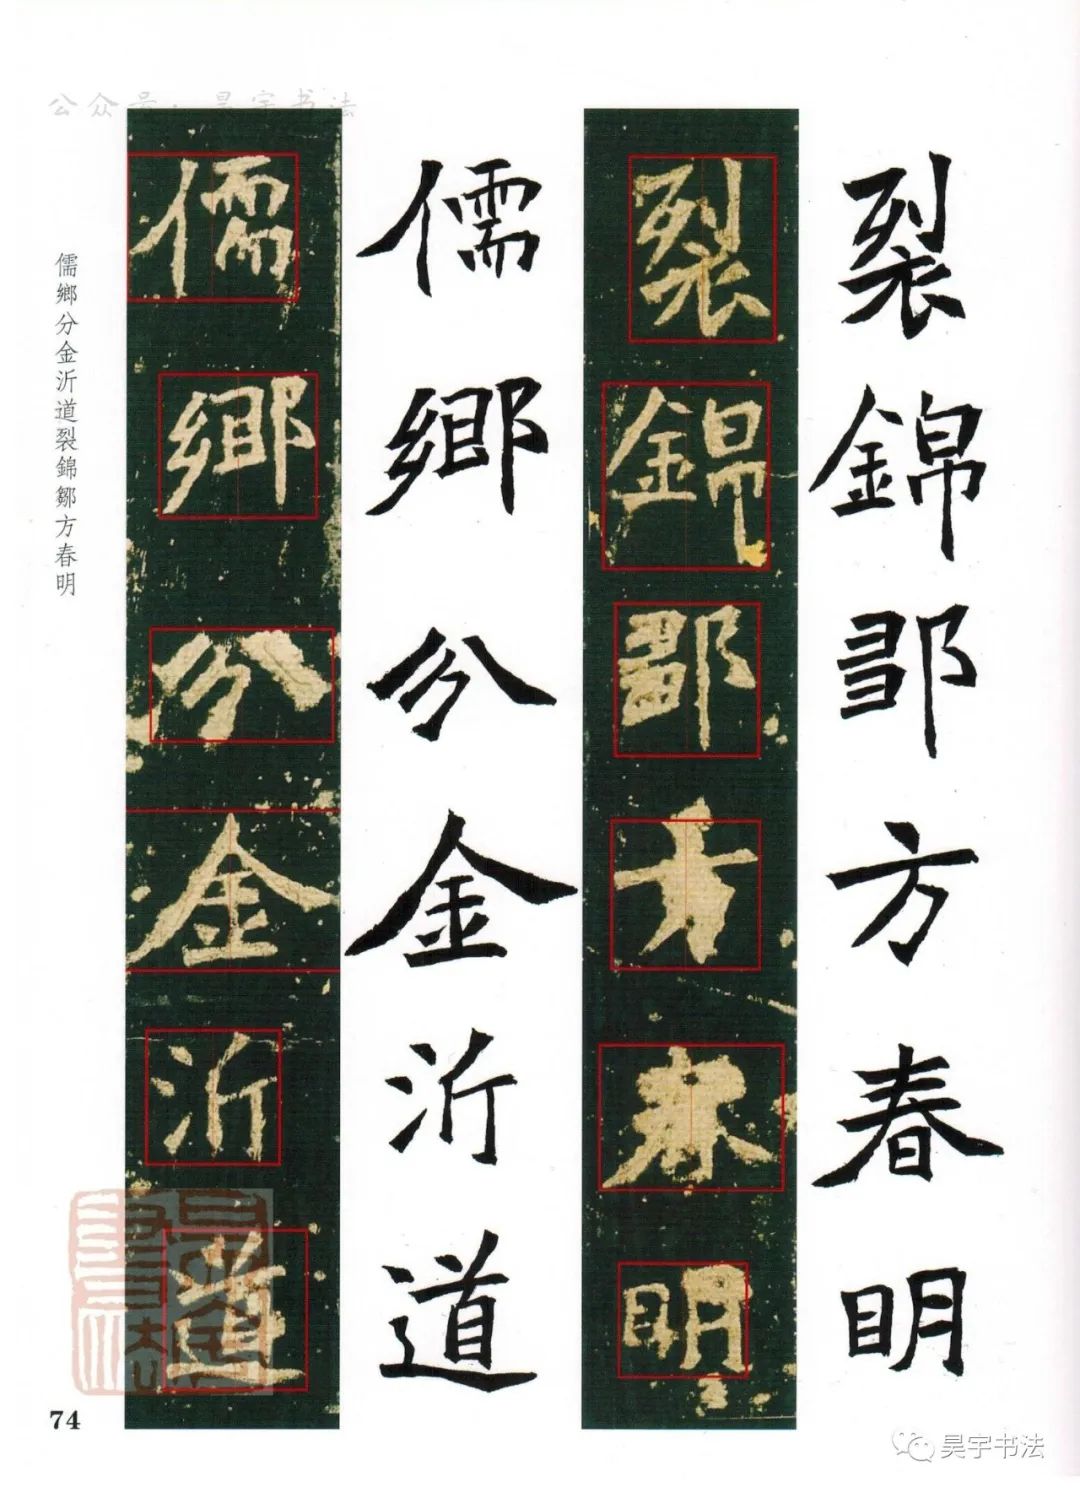 公众号·昊宇书法
儒鄉分金沂道裂錦鄒方春明
儒鄉分金沂道
儒鄉分金沂道
裂錦鄒方春明
裂錦鄒方春明
74
昊宇书法